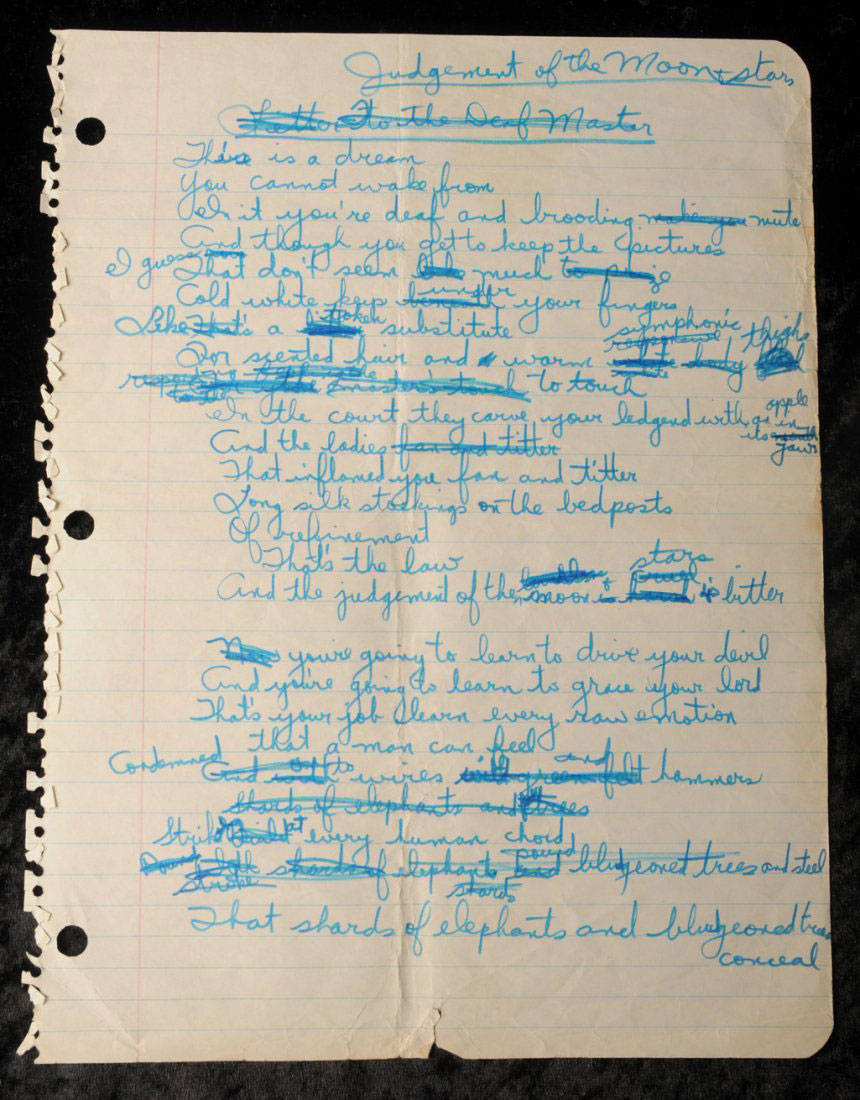 Judgement of the Moon & stars
Letter to the Deaf Master
This is a dream
You cannot wake from
In it you're deaf and brooding make you mute
And though you get to keep the pictures
I guess That don't seem like much to
Cold white keys beneath under your fingers
Like That's a token substitute
symphonic thighs
For scented hair and warm body
master's touch to touch
In the court they carve your ledgend with an apple in
its mouth jaws
And the ladies fan and titter
That inflamed you fan and titter
Long silk stockings on the bedposts
Of refinement
That's the law
stars
And the judgement of the moon & cruel is bitter
Now you're going to learn to drive your devil
And you're going to learn to grace your lord
That's your job learn every raw emotion
that a man can feel
Condemned to wires with green felt and hammers
shards of elephants and trees
Strike at every human chord
Pound shards of elephants and bludgeoned trees and steel
strike shards
That shards of elephants and bludgeoned trees
conceal